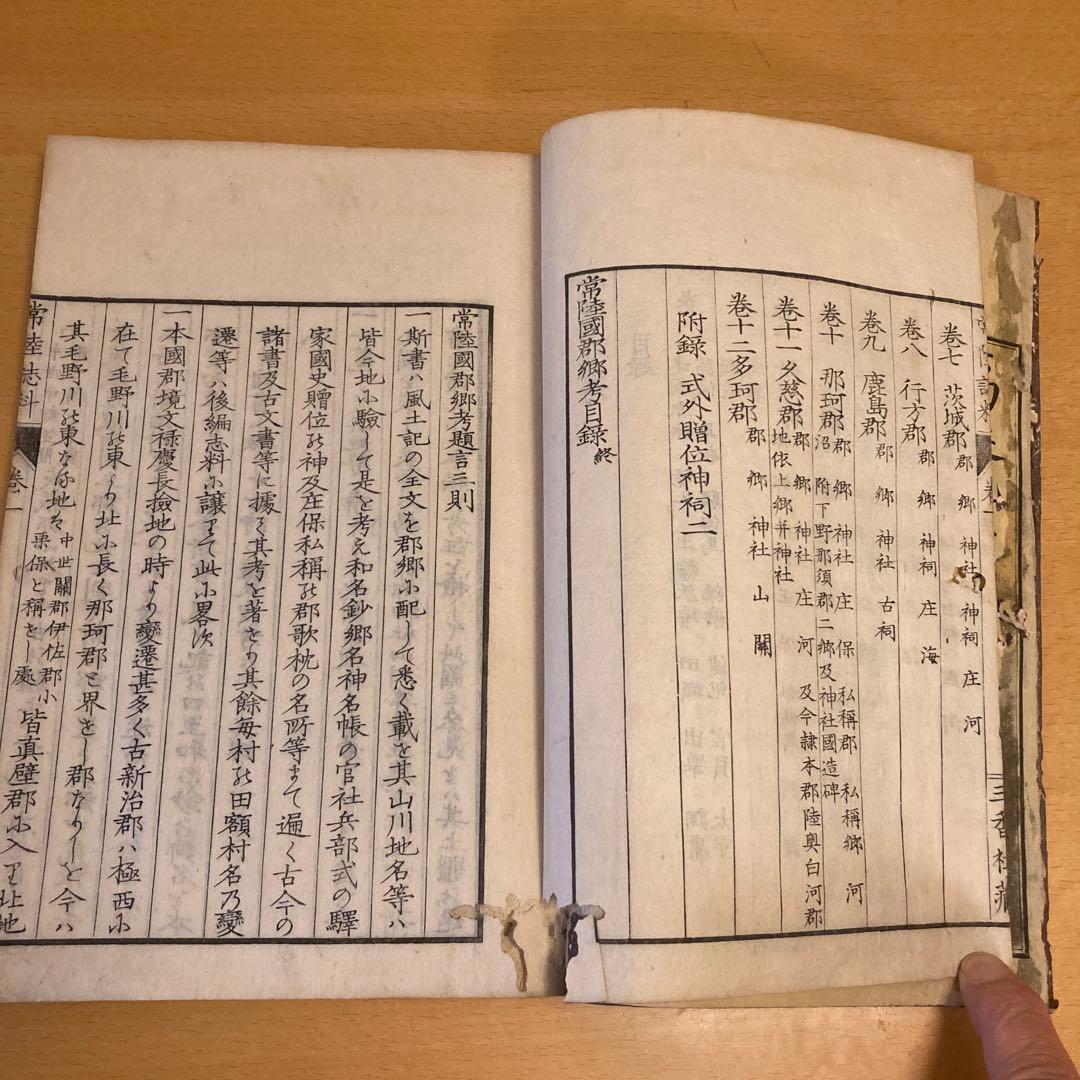 卷七 茨城郡 郡 鄉 神社 神祠 庄 河
卷八 行方郡 郡 鄉 神祠 庄 海
卷九 鹿島郡 郡 鄉 神社 古祠
卷十 那珂郡 郡 鄉 神社 庄 保 私稱郡 私稱鄉 河
沼 附下野那須郡二鄉及神社國造碑
卷十一 久慈郡 郡 鄉 神社 庄 河 及今隸本郡陸奧白河郡
地依上鄉并神社
卷十二 多珂郡 郡 鄉 神社 山 關
附錄 式外贈位神祠二
常陸國郡鄉考目錄終
常陸國郡鄉考題言三則
一斯書ハ風土記の全文を郡鄉小配して悉く載を其山川地名等ハ
皆今地小驗して是を考え和名鈔鄉名神名帳の官社兵部式の驛
家國史贈位の神及庄保私稱の郡歌枕の名所等まて遍く古今の
諸書及古文書等に據て其考を著せり其餘每村の田額村名乃變
遷等ハ後編志料小讓りて此小畧次
一本國郡境文祿慶長撿地の時より變遷甚多く古新治郡ハ極西小
在て毛野川の東より北小長く那珂郡と界きし郡なりしを今ハ
其毛野川の東なる地を中世關郡伊佐郡小
栗保と稱きし處皆真壁郡小入り北地
常陸志料 卷一